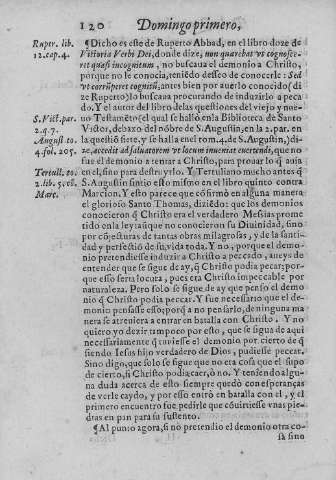 120 Domingo primero,
Ruper. lib.
12.cap.4.
S. Vict. par.
2. q. 7.
August. to.
4. fol. 205.
Tertull. to.
2. lib. 5. cōt.
Marc.
¶Dicho es este de Ruperto Abbad, en el libro doze de
Victoria Verbi Dei, donde dize, non quærebat vt cognosce-
ret quasi incognitum, no buscaua el demonio a Christo,
porque no le conocia, teniēdo desseo de conocerle: Sed
vt corrūperet cognitū, antes bien por auerlo conocido (di
ze Ruperto) lo buscaua procurando de induzirlo a pecca
do. Y el autor del libro delas questiones del viejo y nue-
uo Testamēto (el qual se halló en la Biblioteca de Santo
Victor, debaxo del nōbre de S. Augustin, en la 2. par. en
la question siete, y se halla en el tom. 4. de S. Augustin,) di-
ze, accedit ad saluatorem vt locum inueniat euertendi, que no
fue el demonio a tentar a Christo, para prouar lo q̄ auia
en el, sino para destruyrlo. Y Tertuliano mucho antes q̄
S. Augustin sintio esto mismo en el libro quinto contra
Marcion. Y esto parece que cōfirmó en alguna manera
el glorioso Santo Thomas, diziēdo: que los demonios
conocieron q̄ Christo era el verdadero Messias prome
tido en la ley: aũque no conocieron su Diuinidad, sino
por cōjesturas de tantas obras milagrosas, y de la santi-
dad y perfestiō de su vida toda. Y no, porque el demo-
nio pretendiesse induzir a Christo a peccado, aueys de
entender que se sigue de ay, q̄ Christo podia pecar; por-
que esso sera locura, pues era Christo impeccable por
naturaleza. Pero solo se sigue de ay que penso el demo
nio q̄ Christo podia pecar. Y fue necessario que el de-
monio pensasse esso; porq̄ a no pensarlo, de ninguna ma
nera se atreuiera a entrar en batalla con Christo. Y no
quiero yo dezir tampoco por esto, que se sigua de aqui
necessariamente q̄ tuuiesse el demonio por cierto de q̄
siendo Iesus hijo verdadero de Dios, pudiesse peccar.
Sino digo, que solo se sigue que no era cosa que el supo
de cierto, si Christo podia caer, ò no. Y teniendo algu-
na duda acerca de esto siempre quedó con esperanças
de verle caydo, y por esso entró en batalla con el, y el
primero encuentro fue pedirle que cōuirtiesse vnas pie-
dras en pan para su sustento.
¶Al punto agora, si no pretendio el demonio otra co-
sa sino